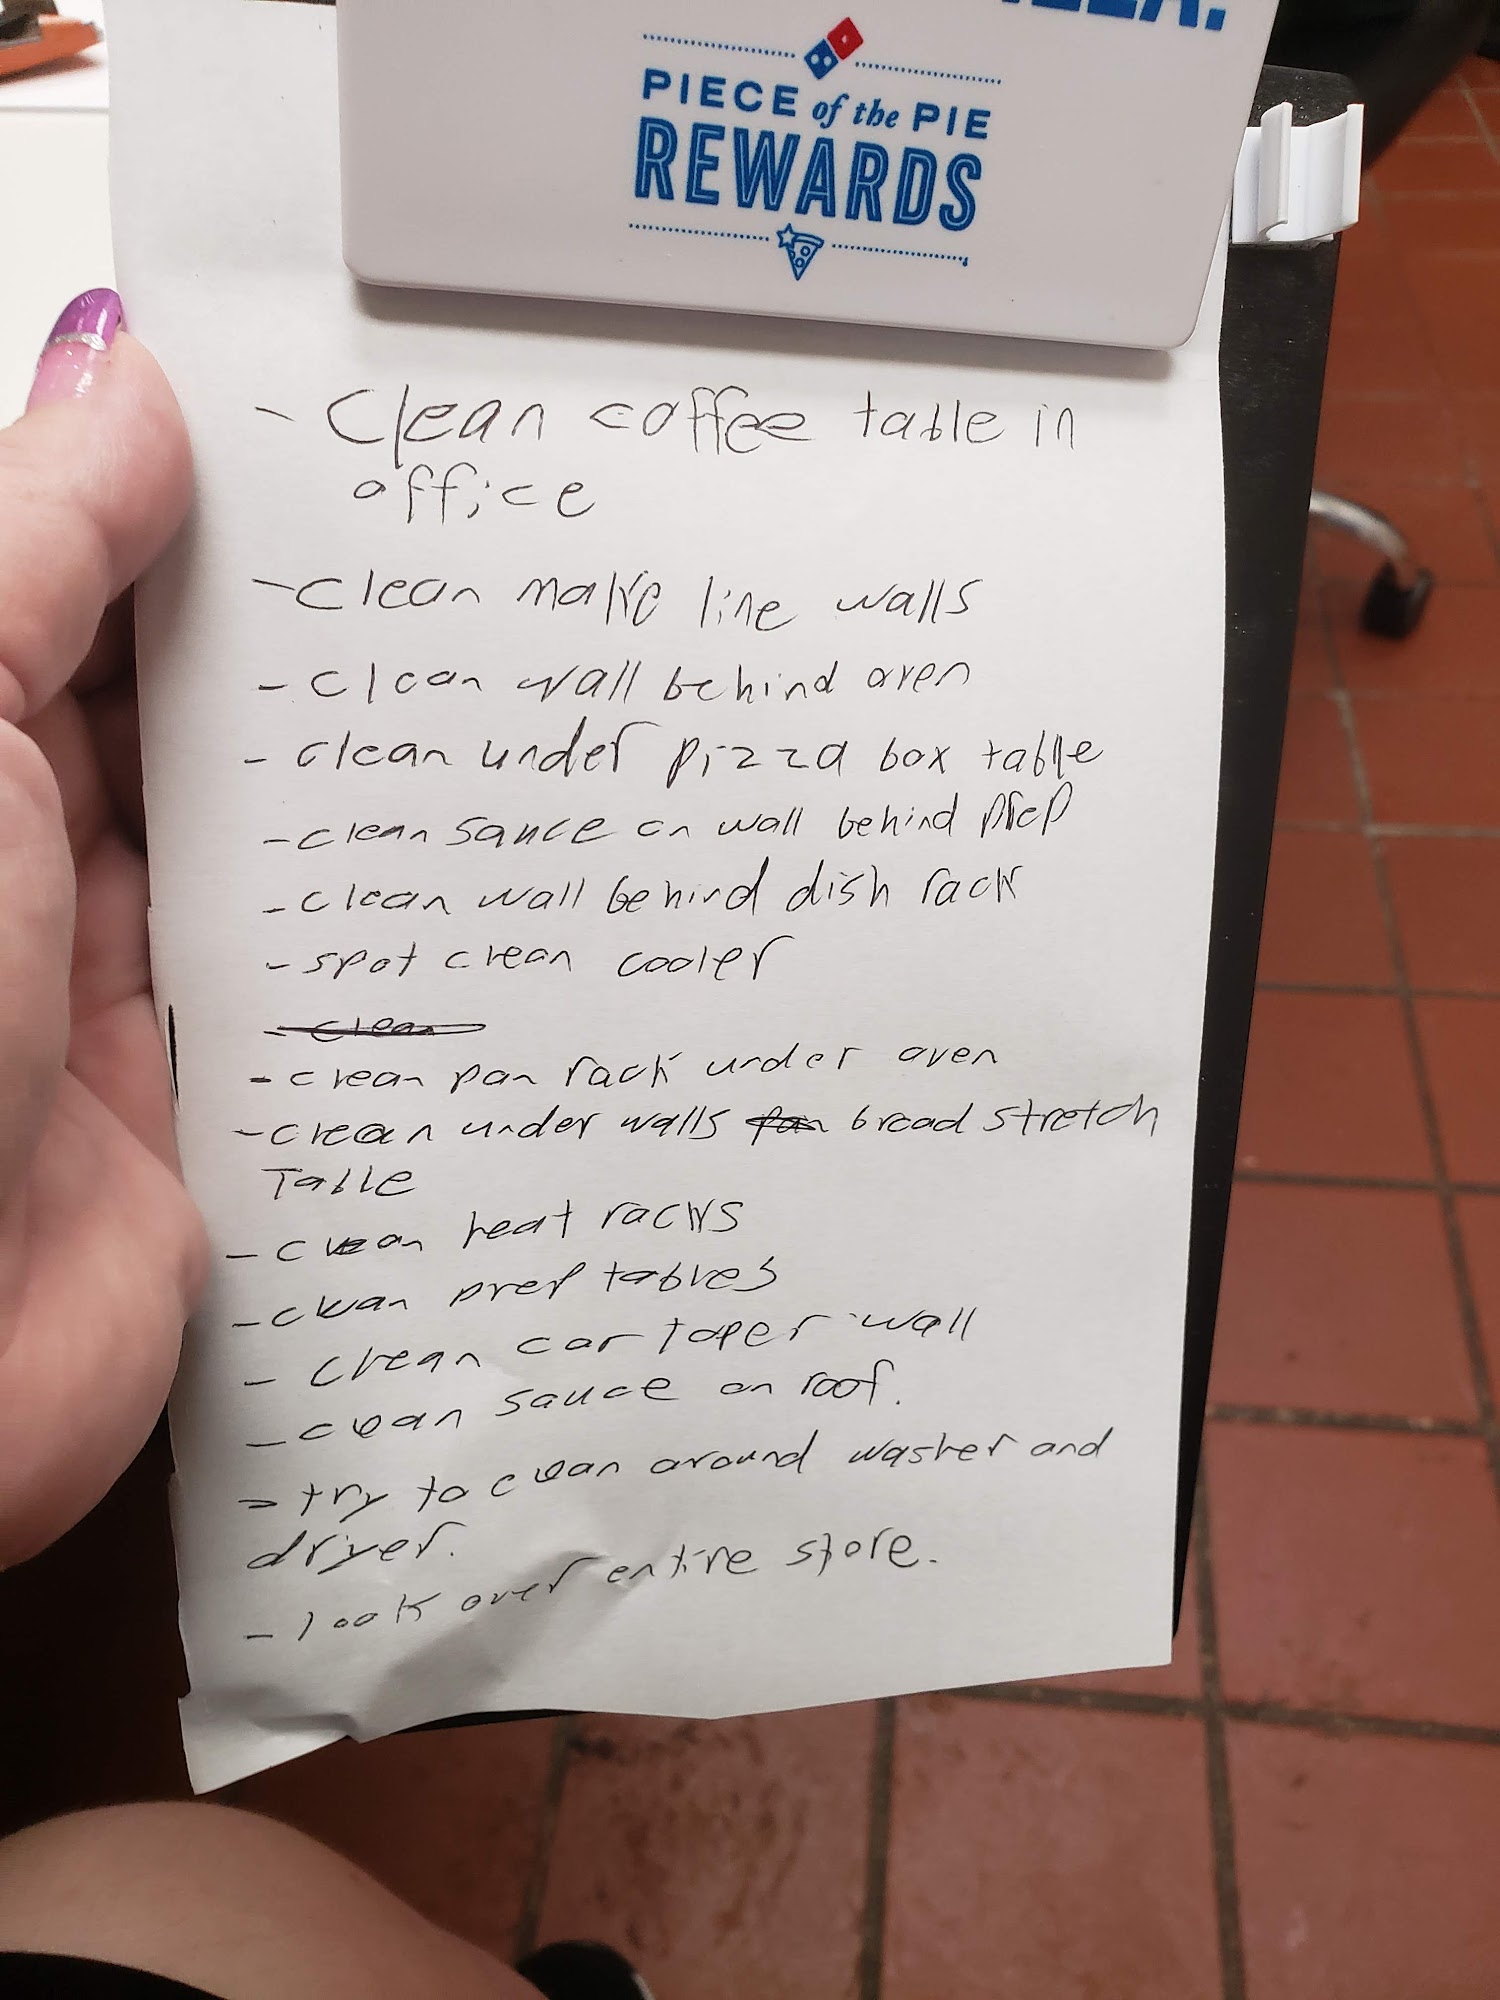 PIECE of the PIE
REWARDS
- Clean coffee table in
office
- Clean make line walls
- Clean wall behind oven
- clean under pizza box table
- clean sauce on wall behind prep
- clean wall behind dish rack
- spot clean cooler
- clean
- clean pan rack under oven
- clean under walls pan bread stretch
Table
- clean heat racks
- clean prep tables
- clean car toper wall
- clean sauce on roof.
- try to clean around washer and
dryer.
- look over entire store.